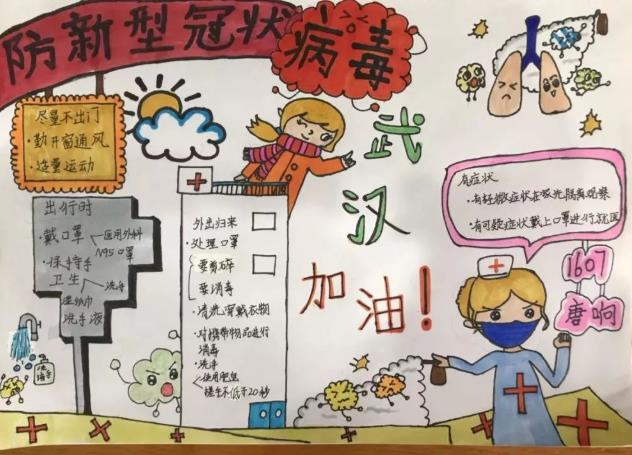 防新型冠状
病毒
武汉
加油!
尽量不出门
·勤开窗通风
·适量运动
出行时
·戴口罩
医用外科
N95口罩
·保持手
卫生
洗手
湿纸巾
洗手液
外出归来
·处理口罩
要剪碎
要消毒
·清洗穿戴衣物
·对携带物品进行
消毒
·洗手
使用肥皂
搓手不低于20秒
有症状
·有轻微症状在家
观察
·有可疑症状戴上口罩进行就医
1607
唐响